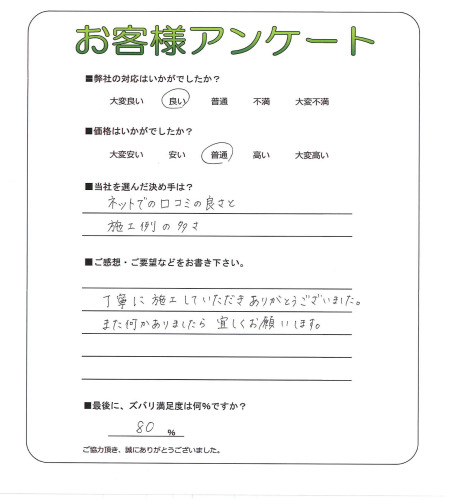 お客様アンケート
■弊社の対応はいかがでしたか？
大変良い 良い 普通 不満 大変不満
■価格はいかがでしたか？
大変安い 安い 普通 高い 大変高い
■当社を選んだ決め手は？
ネットでの口コミの良さと
施工例の多さ
■ご感想・ご要望などをお書き下さい。
丁寧に施工していただきありがとうございました。
また何かありましたら宜しくお願いします。
■最後に、ズバリ満足度は何%ですか？
80 %
ご協力頂き、誠にありがとうございました。